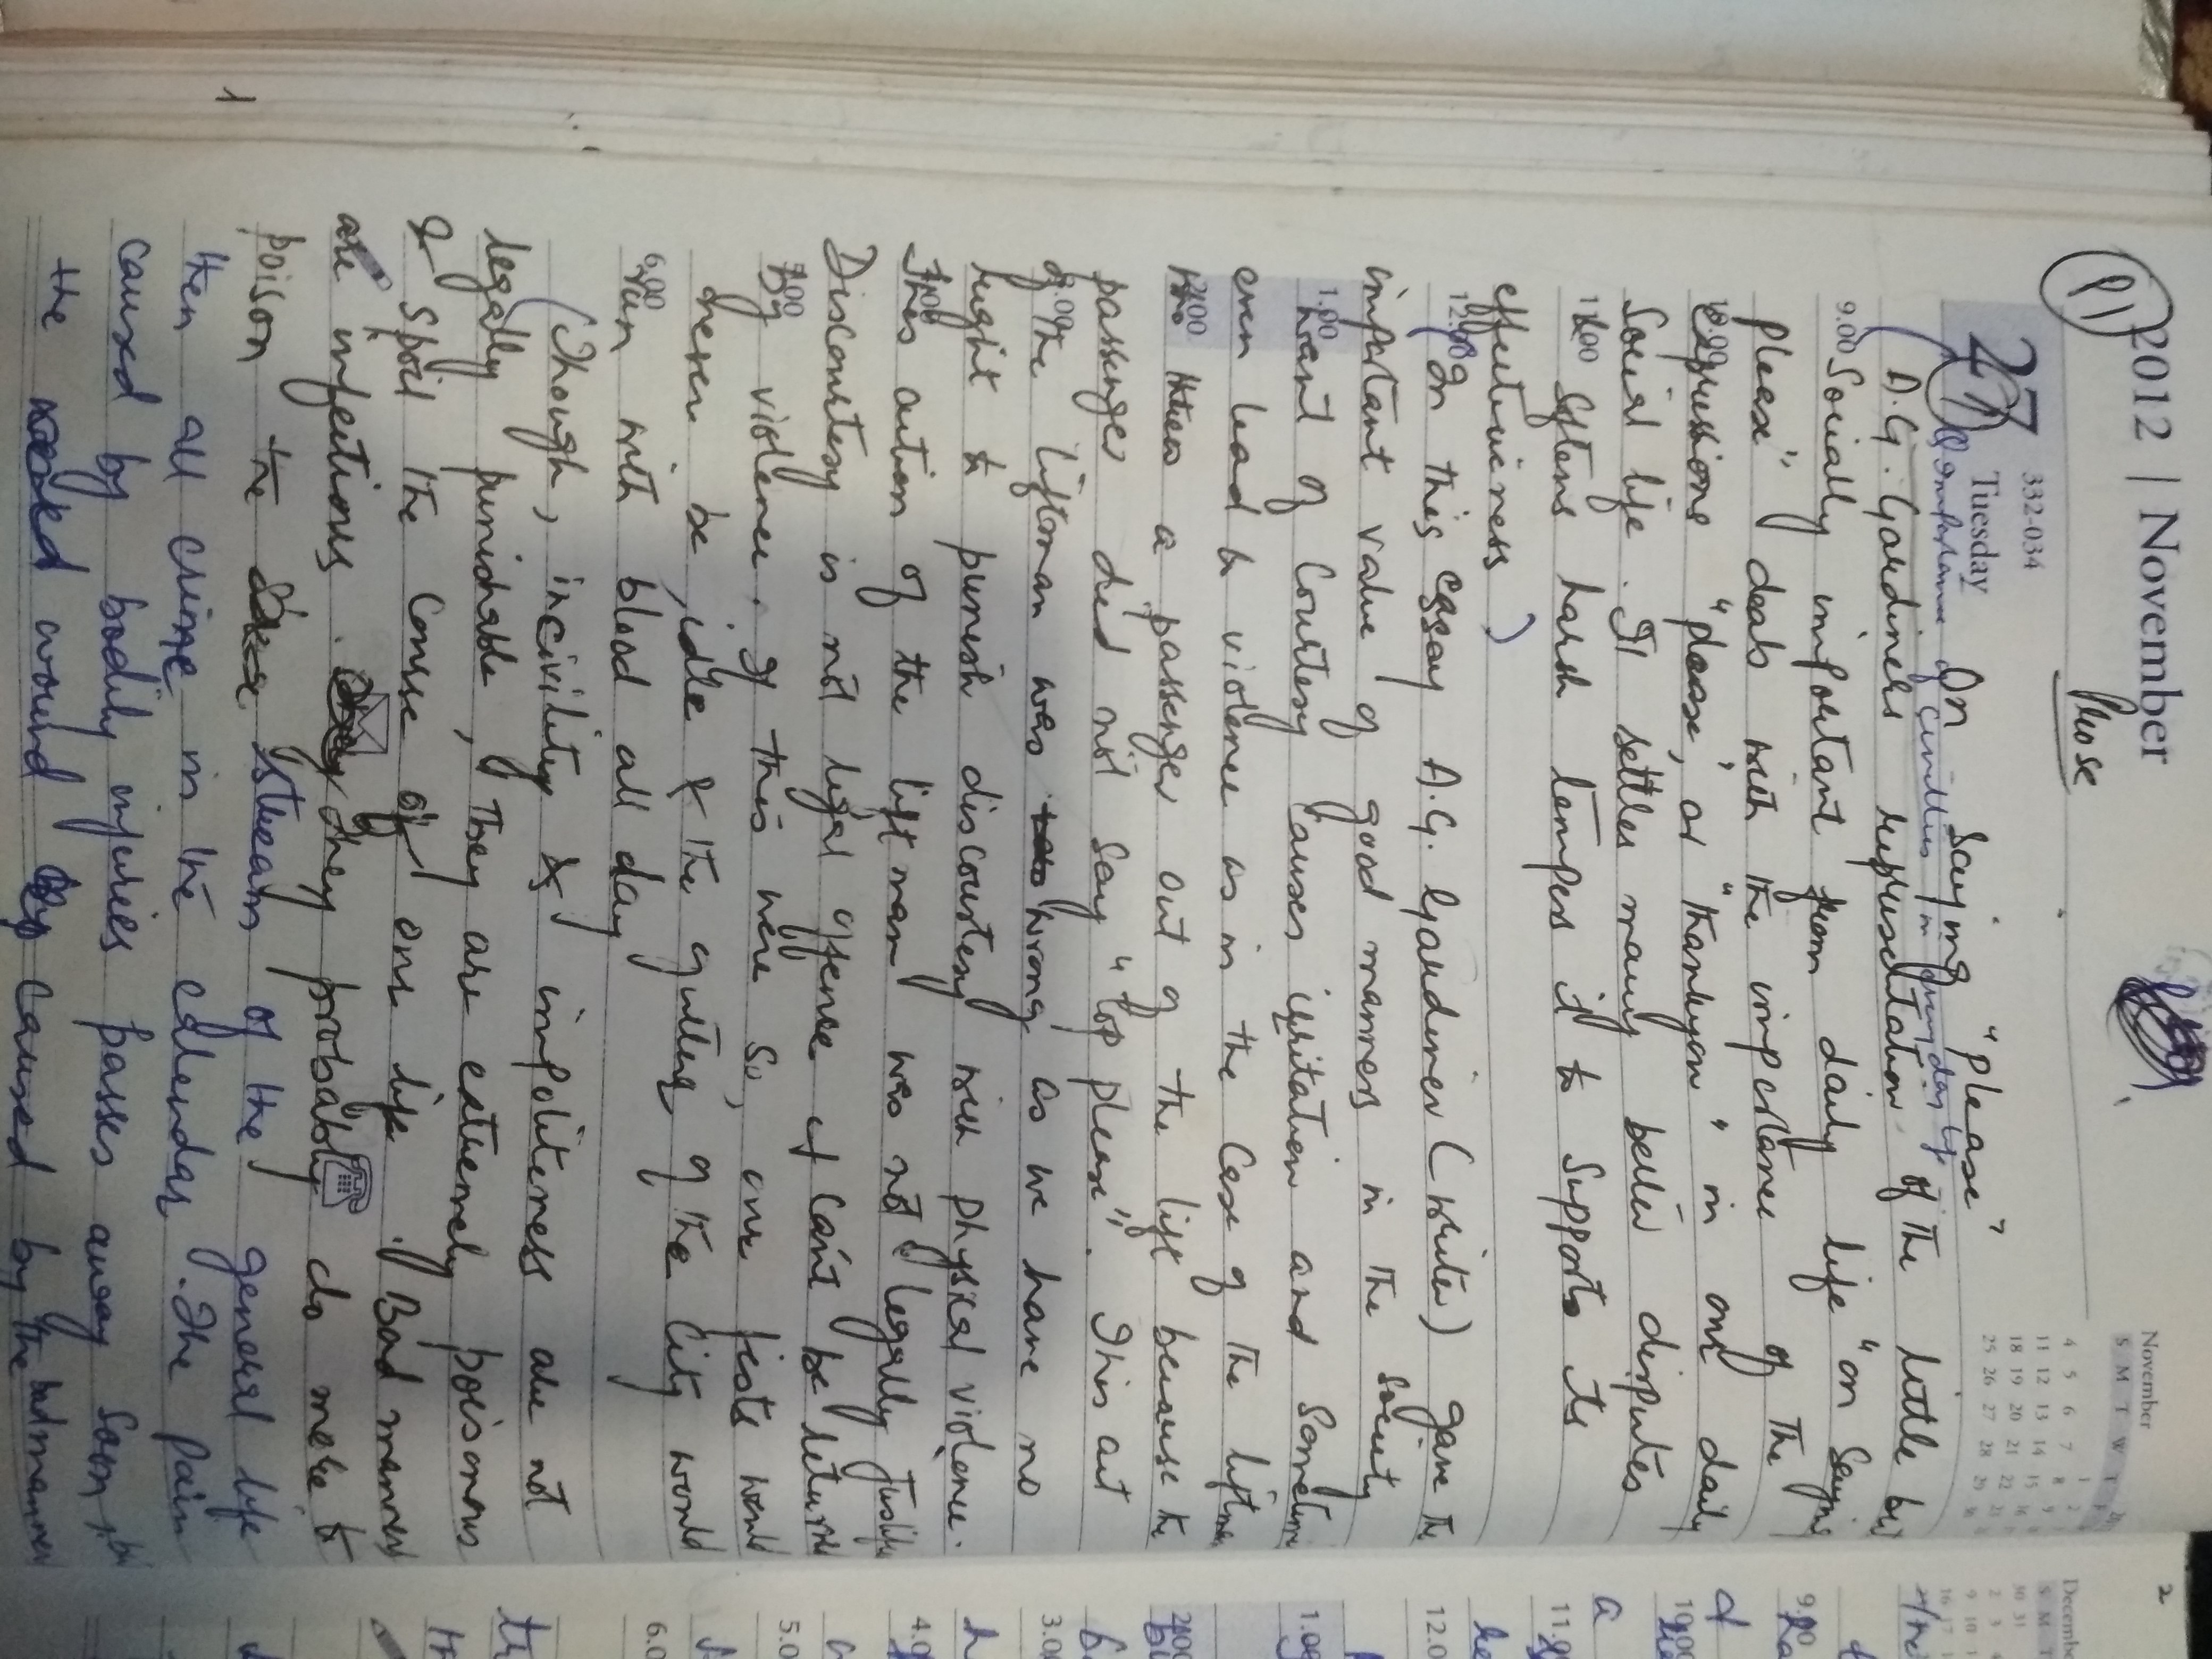 2012 | November
Prose
(P1)
27
332-034
Tuesday
November
S M T W T F S
1 2
4 5 6 7 8 9
11 12 13 14 15 16
18 19 20 21 22 23
25 26 27 28 29 30
On Saying "Please"
(Importance of civilities in our day to day life)
(A.G. Gardiners representation of the little but
9.00 Socially important from daily life "on Saying
Please" deals with the importance of the
10.00 expressions "please", or "thankyou" in our daily
Social life. It settles many beller disputes
11.00 Softens harsh tempers it to Supports its
effectiveness)
12.00 (In this essay A.G. Gardiner (writer) gave the
important value of good manners in the society
1.00 Want of Courtesy Causes irritation and Sometimes
even lead to violence as in the Case of the liftman
2.00 Who threw a passenger out of the lift because the
passenger did not say "top please". This act
3.00 of the liftman was wrong as we have no
right to punish discourtesy with physical violence.
4.00 This action of the lift man was not legally Justified
Discourtesy is not legal offence & Can't be returned
5.00 by violence. If this were so, our fists would
never be idle & the gutters of the City would
6.00 run with blood all day
(Though, incivility & impoliteness are not
legally punishable, They are extremely poisonous
& Spoil the Course of our life. Bad manners
are infectious. They probably do more to
poison the stream of the general life
then all crime in the calendar. The pain
caused by bodily injuries passes away soon but
the wound caused by the bad manner
2
December
S M T
30 31
2 3 4
9 10 1
16 17 1
9.00
10.00
11.00
12.0
1.00
2.00
3.00
4.0
5.0
6.0